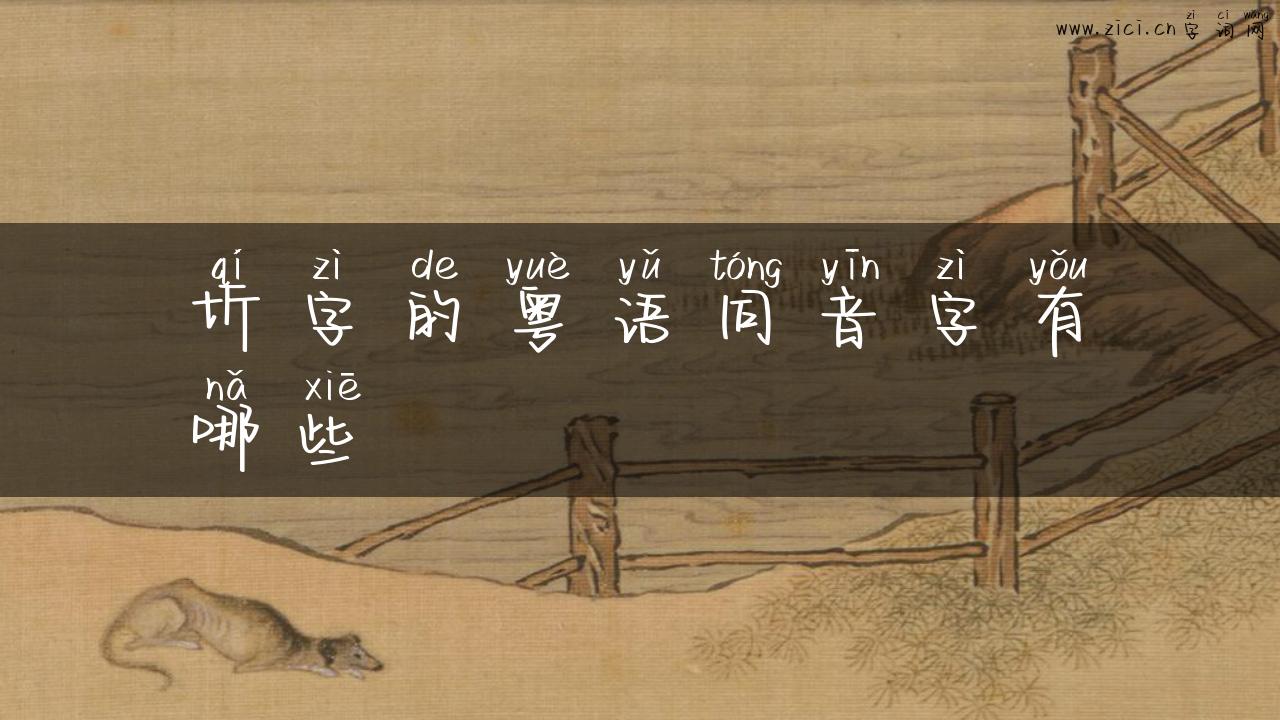 zì cí wǎng
www.zici.cn 字 词 网
qí zì de yuè yǔ tóng yīn zì yǒu
圻 字 的 粤 语 同 音 字 有
nǎ xiē
哪 些